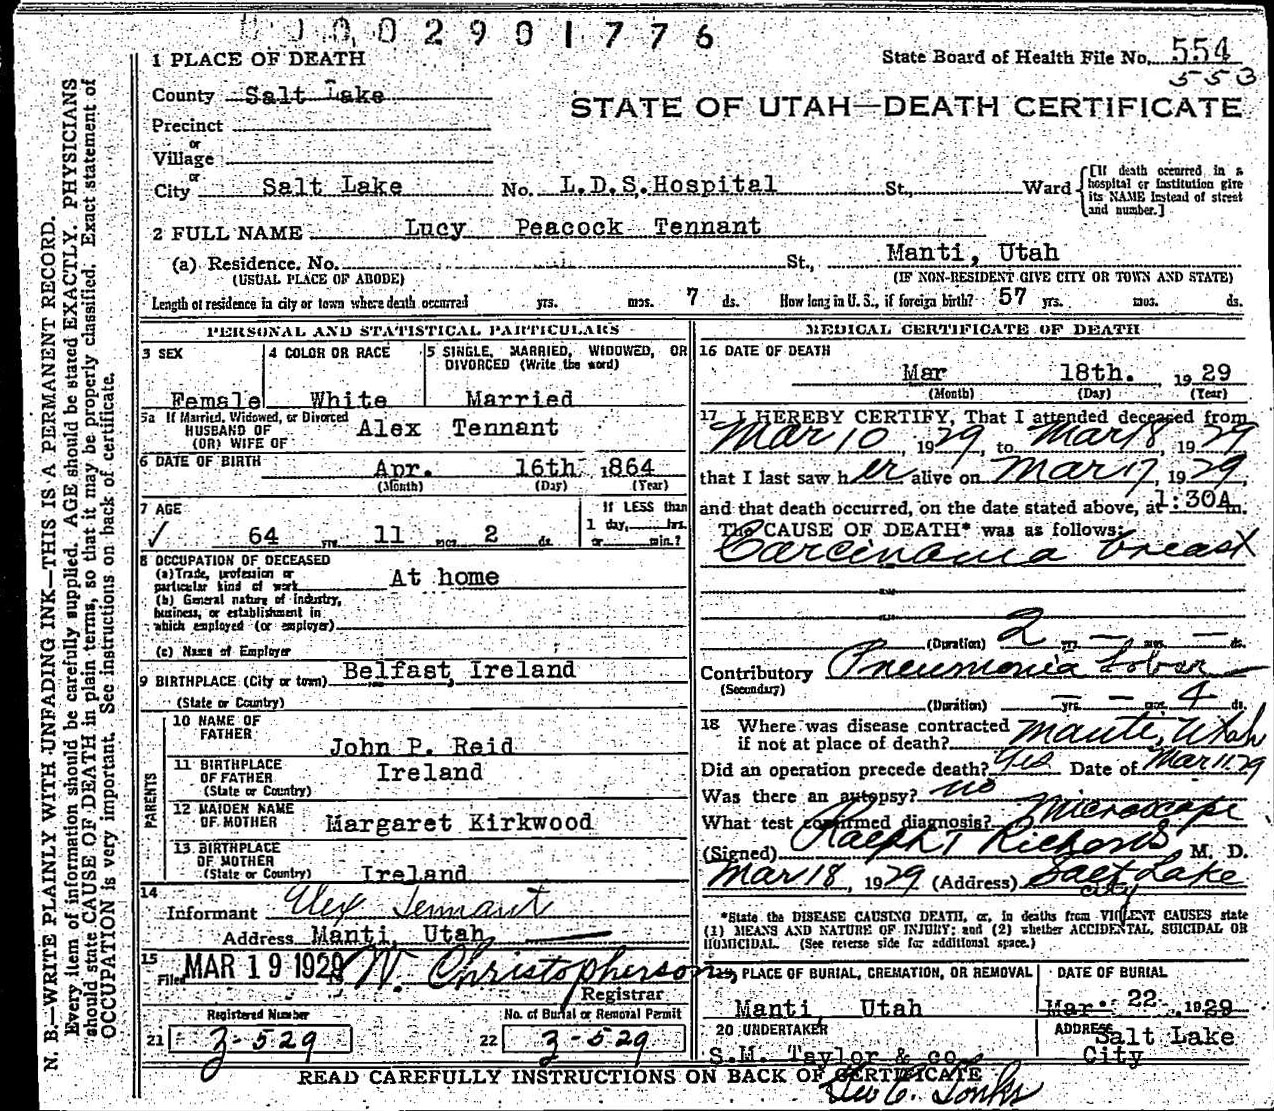 0 0 0 0 2 9 0 1 7 7 6
1 PLACE OF DEATH
State Board of Health File No. 554
553
County Salt Lake
STATE OF UTAH—DEATH CERTIFICATE
Precinct
or
Village
or
City Salt Lake No. L.D.S.Hospital St., Ward
[If death occurred in a hospital or institution give its NAME instead of street and number.]
2 FULL NAME Lucy Peacock Tennant
(a) Residence. No. St., Manti, Utah
(USUAL PLACE OF ABODE) (IF NON-RESIDENT GIVE CITY OR TOWN AND STATE)
Length of residence in city or town where death occurred yrs. mos. 7 ds. How long in U. S., if foreign birth? 57 yrs. mos. ds.
PERSONAL AND STATISTICAL PARTICULARS
3 SEX
Female
4 COLOR OR RACE
White
5 SINGLE, MARRIED, WIDOWED, OR
DIVORCED (Write the word)
Married
5a If Married, Widowed, or Divorced
HUSBAND OF
(OR) WIFE OF
Alex Tennant
6 DATE OF BIRTH Apr. 16th 1864
(Month) (Day) (Year)
7 AGE
✓ 64 yrs. 11 mos. 2 ds.
If LESS than
1 day, hrs.
or min.?
8 OCCUPATION OF DECEASED
(a) Trade, profession or
particular kind of work At home
(b) General nature of industry,
business, or establishment in
which employed (or employer)
(c) Name of Employer
9 BIRTHPLACE (City or town) Belfast, Ireland
(State or Country)
PARENTS
10 NAME OF
FATHER
John P. Reid
11 BIRTHPLACE
OF FATHER
(State or Country)
Ireland
12 MAIDEN NAME
OF MOTHER Margaret Kirkwood
13 BIRTHPLACE
OF MOTHER
(State or Country) Ireland
14
Informant Alex Tennant
Address Manti, Utah
15
Filed MAR 19 1929 W. Christopherson
Registrar
Registered Number
21 3-529
No. of Burial or Removal Permit
22 3-529
MEDICAL CERTIFICATE OF DEATH
16 DATE OF DEATH
Mar 18th. 1929
(Month) (Day) (Year)
17 I HEREBY CERTIFY, That I attended deceased from
Mar 10, 1929, to Mar 18, 1929
that I last saw her alive on Mar 17, 1929,
and that death occurred, on the date stated above, at 1:30A m.
The CAUSE OF DEATH* was as follows:
Carcinoma breast
(Duration) 2 yrs. — mos. — ds.
Contributory Pneumonia Lobar
(Secondary)
(Duration) — yrs. — mos. 4 ds.
18 Where was disease contracted
if not at place of death? Manti, Utah
Did an operation precede death? Yes Date of Mar 11. 29
Was there an autopsy? no
What test confirmed diagnosis? Microscope
(Signed) Ralph T Richards M. D.
Mar 18, 1929 (Address) Salt Lake
City
*State the DISEASE CAUSING DEATH, or, in deaths from VIOLENT CAUSES state
(1) MEANS AND NATURE OF INJURY; and (2) whether ACCIDENTAL, SUICIDAL OR
HOMICIDAL. (See reverse side for additional space.)
19 PLACE OF BURIAL, CREMATION, OR REMOVAL
Manti, Utah
DATE OF BURIAL
Mar. 22, 1929
20 UNDERTAKER
S.M. Taylor & co.
ADDRESS
Salt Lake
City
READ CAREFULLY INSTRUCTIONS ON BACK OF CERTIFICATE
Geo C. Tonks
N. B.—WRITE PLAINLY WITH UNFADING INK—THIS IS A PERMANENT RECORD.
Every item of information should be carefully supplied. AGE should be stated EXACTLY. PHYSICIANS
should state CAUSE OF DEATH in plain terms, so that it may be properly classified. Exact statement of
OCCUPATION is very important. See instructions on back of certificate.